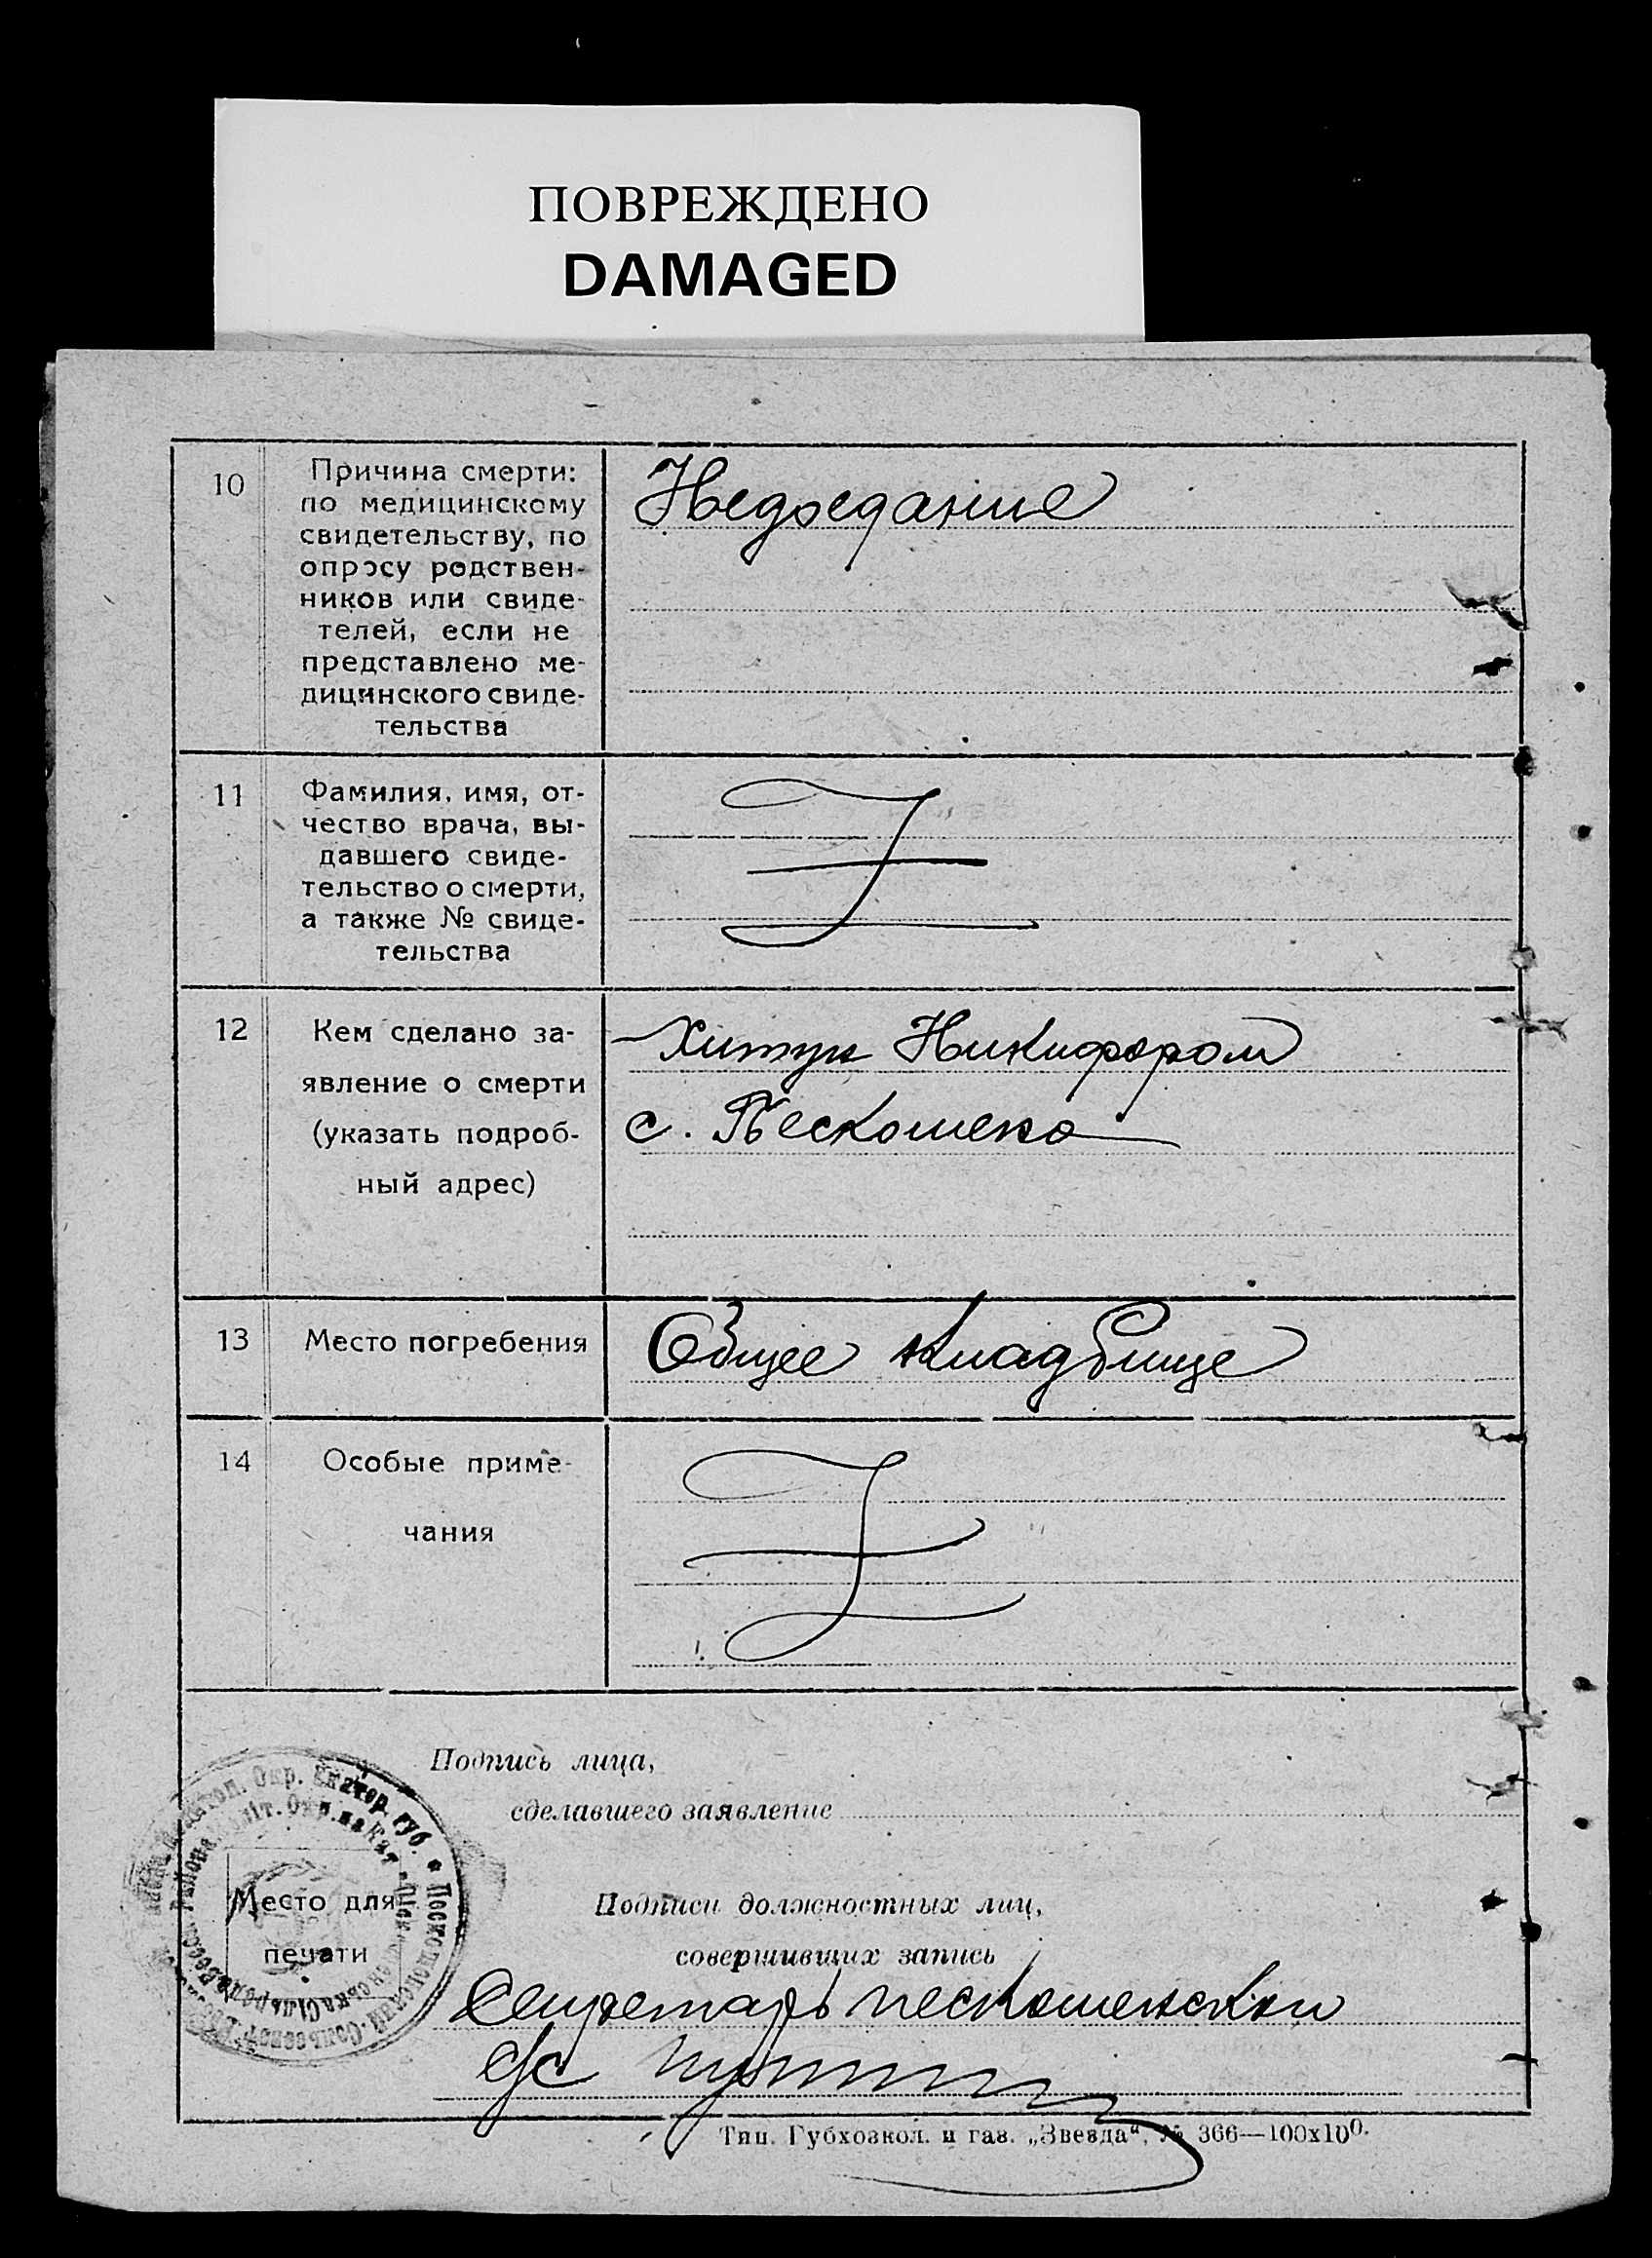 ПОВРЕЖДЕНО
DAMAGED
10
Причина смерти:
по медицинскому
свидетельству, по
опросу родствен-
ников или свиде-
телей, если не
представлено ме-
дицинского свиде-
тельства
Недоедание
11
Фамилия, имя, от-
чество врача, вы-
давшего свиде-
тельство о смерти,
а также № свиде-
тельства
12
Кем сделано за-
явление о смерти
(указать подроб-
ный адрес)
Хитун Никифором
с. Пескошено
13
Место погребения
Общее кладбище
14
Особые приме-
чания
Подпись лица,
сделавшего заявление
Окр. Екатер. губ.
Место для
печати
Подписи должностных лиц,
совершивших запись
Секретарь пескошенской
с/с
Тип. Губхозкол. и газ. „Звезда“, № 366—100х100.